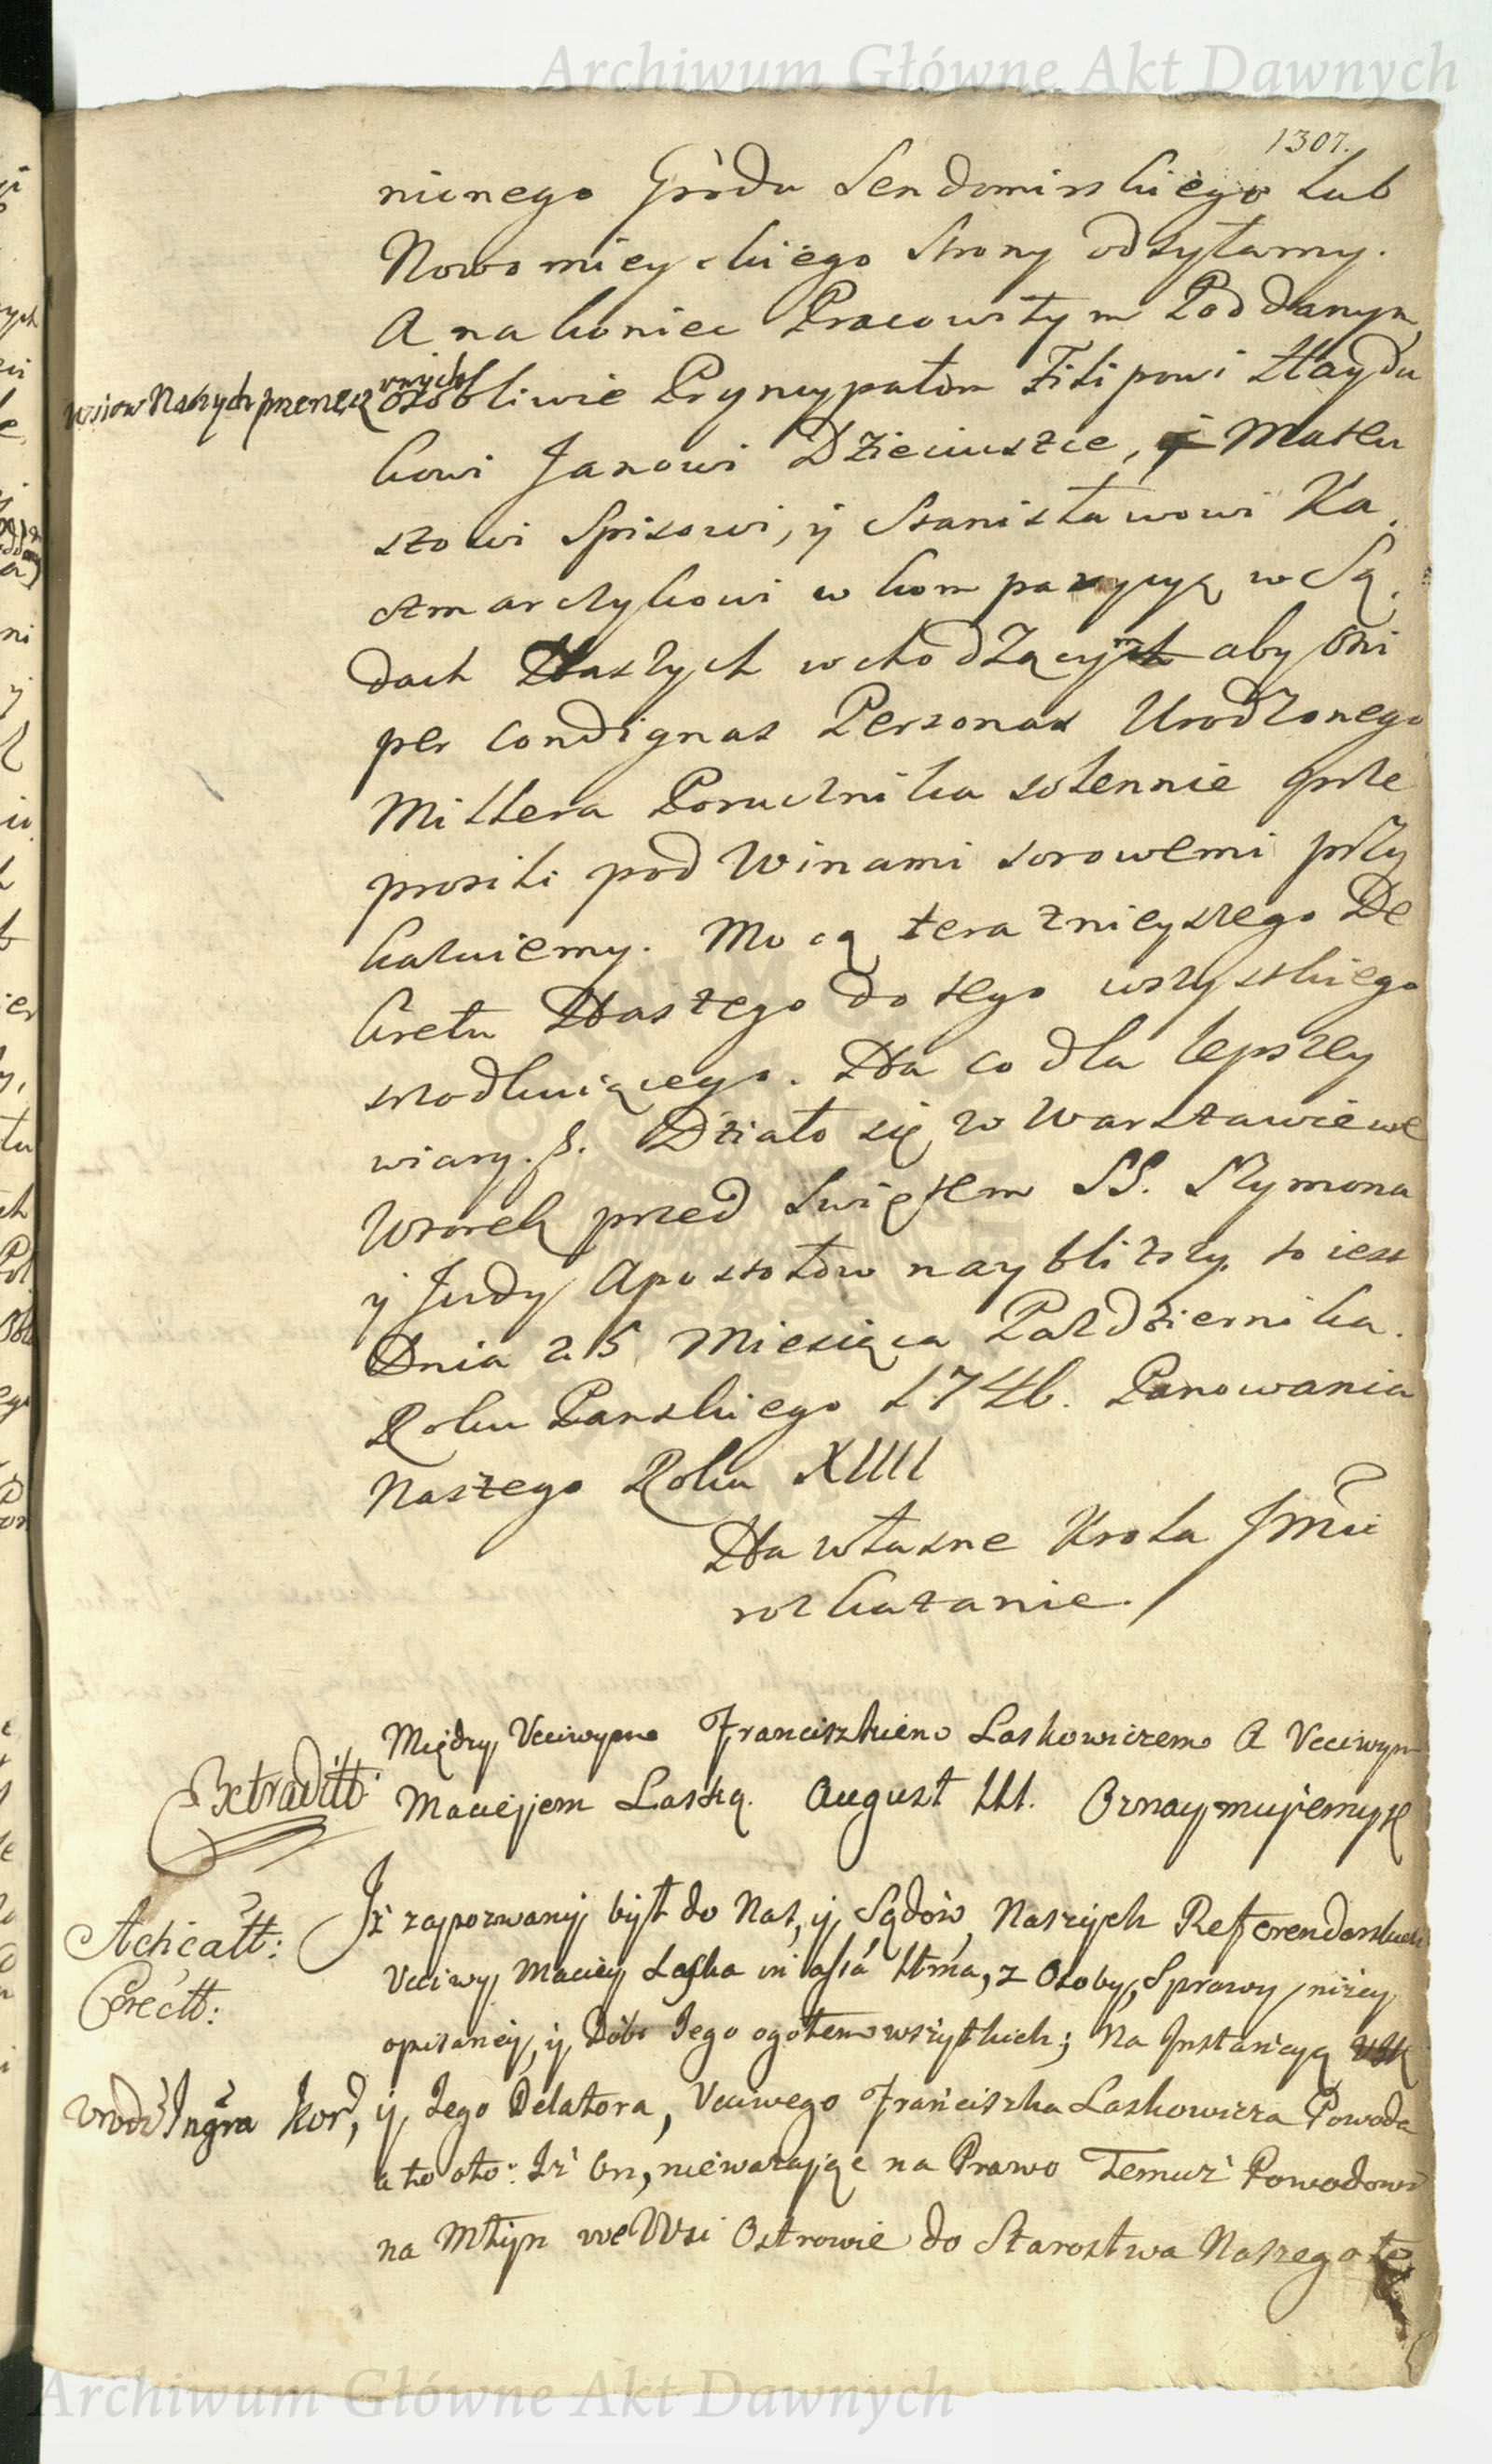 Archiwum Główne Akt Dawnych
1307.
nionego Gròdu Sendomirskiego lub
Nowomieyskiego Strony odsyłamy.
A na koniec Pracowitym Poddanym
wsiow Naszych przerzecz
osobliwie Pryncypałom Filipowi Haydu
kowi Janowi Dzieciuszce, Mateu
szowi Spisowi, y Stanisławowi Ka
czmarczykowi w komparycyą w Są
dach Naszych wchodzącym aby oni
per condignas Personas Urodzonego
Millera Porucznika solennie prze
prosili pod Winami sorowemi przy
kazuiemy. Mocą teraznieyszego De
kretu Naszego do tego wszystkiego
szrodkuiącego. Na co dla lepszey
wiary. &. Działo się w Warszawie we
Wtorek przed Swiętem SS. Szymona
y Judy Apostołow nayblizszy to iest
Dnia 25 Miesiąca Pazdziernika.
Roku Panskiego 1746. Panowania
Naszego Roku XIIII
Na własne Krola Jmci
rozkazanie.
Między Ucciwym Franciszkiem Laskowiczem A Ucciwym
Extraditt
Maciejem Laską. August III. Oznaymujemy
Iż zapozwany był do Nas, y Sądów Naszych Referendarskich
Ucciwy Maciey Laska z Osoby, Sprawy niżey
opisaney, y Dóbr Jego ogółem wszytkich; Na Instancyą
y Jego Delatora, Ucciwego Franciszka Laskowicza Powoda
a to oto: Iż On, nieważając na Prawo Temuż Powodowi
na Młyn we Wsi Ostrowie do Starostwa Naszego
Archiwum Główne Akt Dawnych